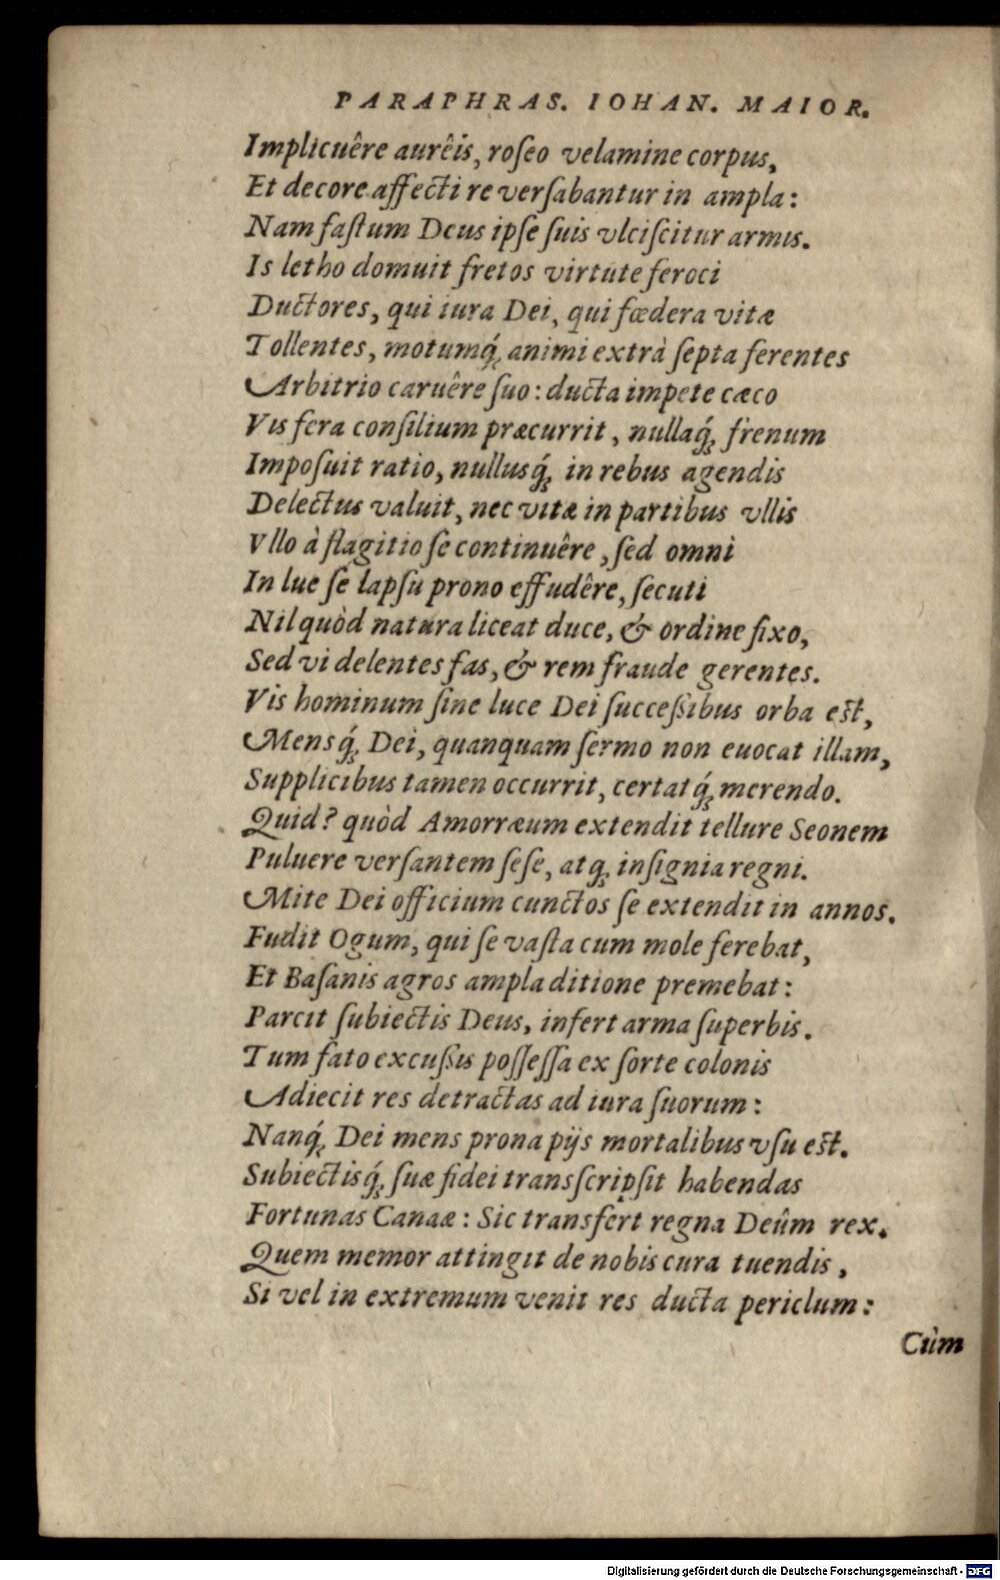 PARAPHRAS. IOHAN. MAIOR.
Implicuêre aurêis, roſeo velamine corpus,
Et decore affecti re verſabantur in ampla:
Nam faſtum Deus ipſe ſuis vlciſcitur armis.
Is letho domuit fretos virtute feroci
Ductores, qui iura Dei, qui fœdera vitæ
Tollentes, motumq́; animi extrà ſepta ferentes
Arbitrio caruêre ſuo: ducta impete cæco
Vis fera conſilium præcurrit, nullaq́; frenum
Impoſuit ratio, nullusq́; in rebus agendis
Delectus valuit, nec vitæ in partibus vllis
Vllo à flagitio ſe continuêre, ſed omni
In lue ſe lapſu prono effudêre, ſecuti
Nil quòd natura liceat duce, & ordine fixo,
Sed vi delentes fas, & rem fraude gerentes.
Vis hominum ſine luce Dei ſucceſsibus orba eſt,
Mensq́; Dei, quanquam ſermo non euocat illam,
Supplicibus tamen occurrit, certatq́; merendo.
Quid? quòd Amorræum extendit tellure Seonem
Puluere verſantem ſeſe, atq; inſignia regni.
Mite Dei officium cunctos ſe extendit in annos.
Fudit Ogum, qui ſe vaſta cum mole ferebat,
Et Baſanis agros ampla ditione premebat:
Parcit ſubiectis Deus, infert arma ſuperbis.
Tum fato excuſsis poſſeſſa ex ſorte colonis
Adiecit res detractas ad iura ſuorum:
Nanq́; Dei mens prona pijs mortalibus vſu eſt.
Subiectisq́; ſuæ fidei transſcripſit habendas
Fortunas Canaæ: Sic transfert regna Deûm rex.
Quem memor attingit de nobis cura tuendis,
Si vel in extremum venit res ducta periclum:
Cùm
Digitalisierung gefördert durch die Deutsche Forschungsgemeinschaft - DFG